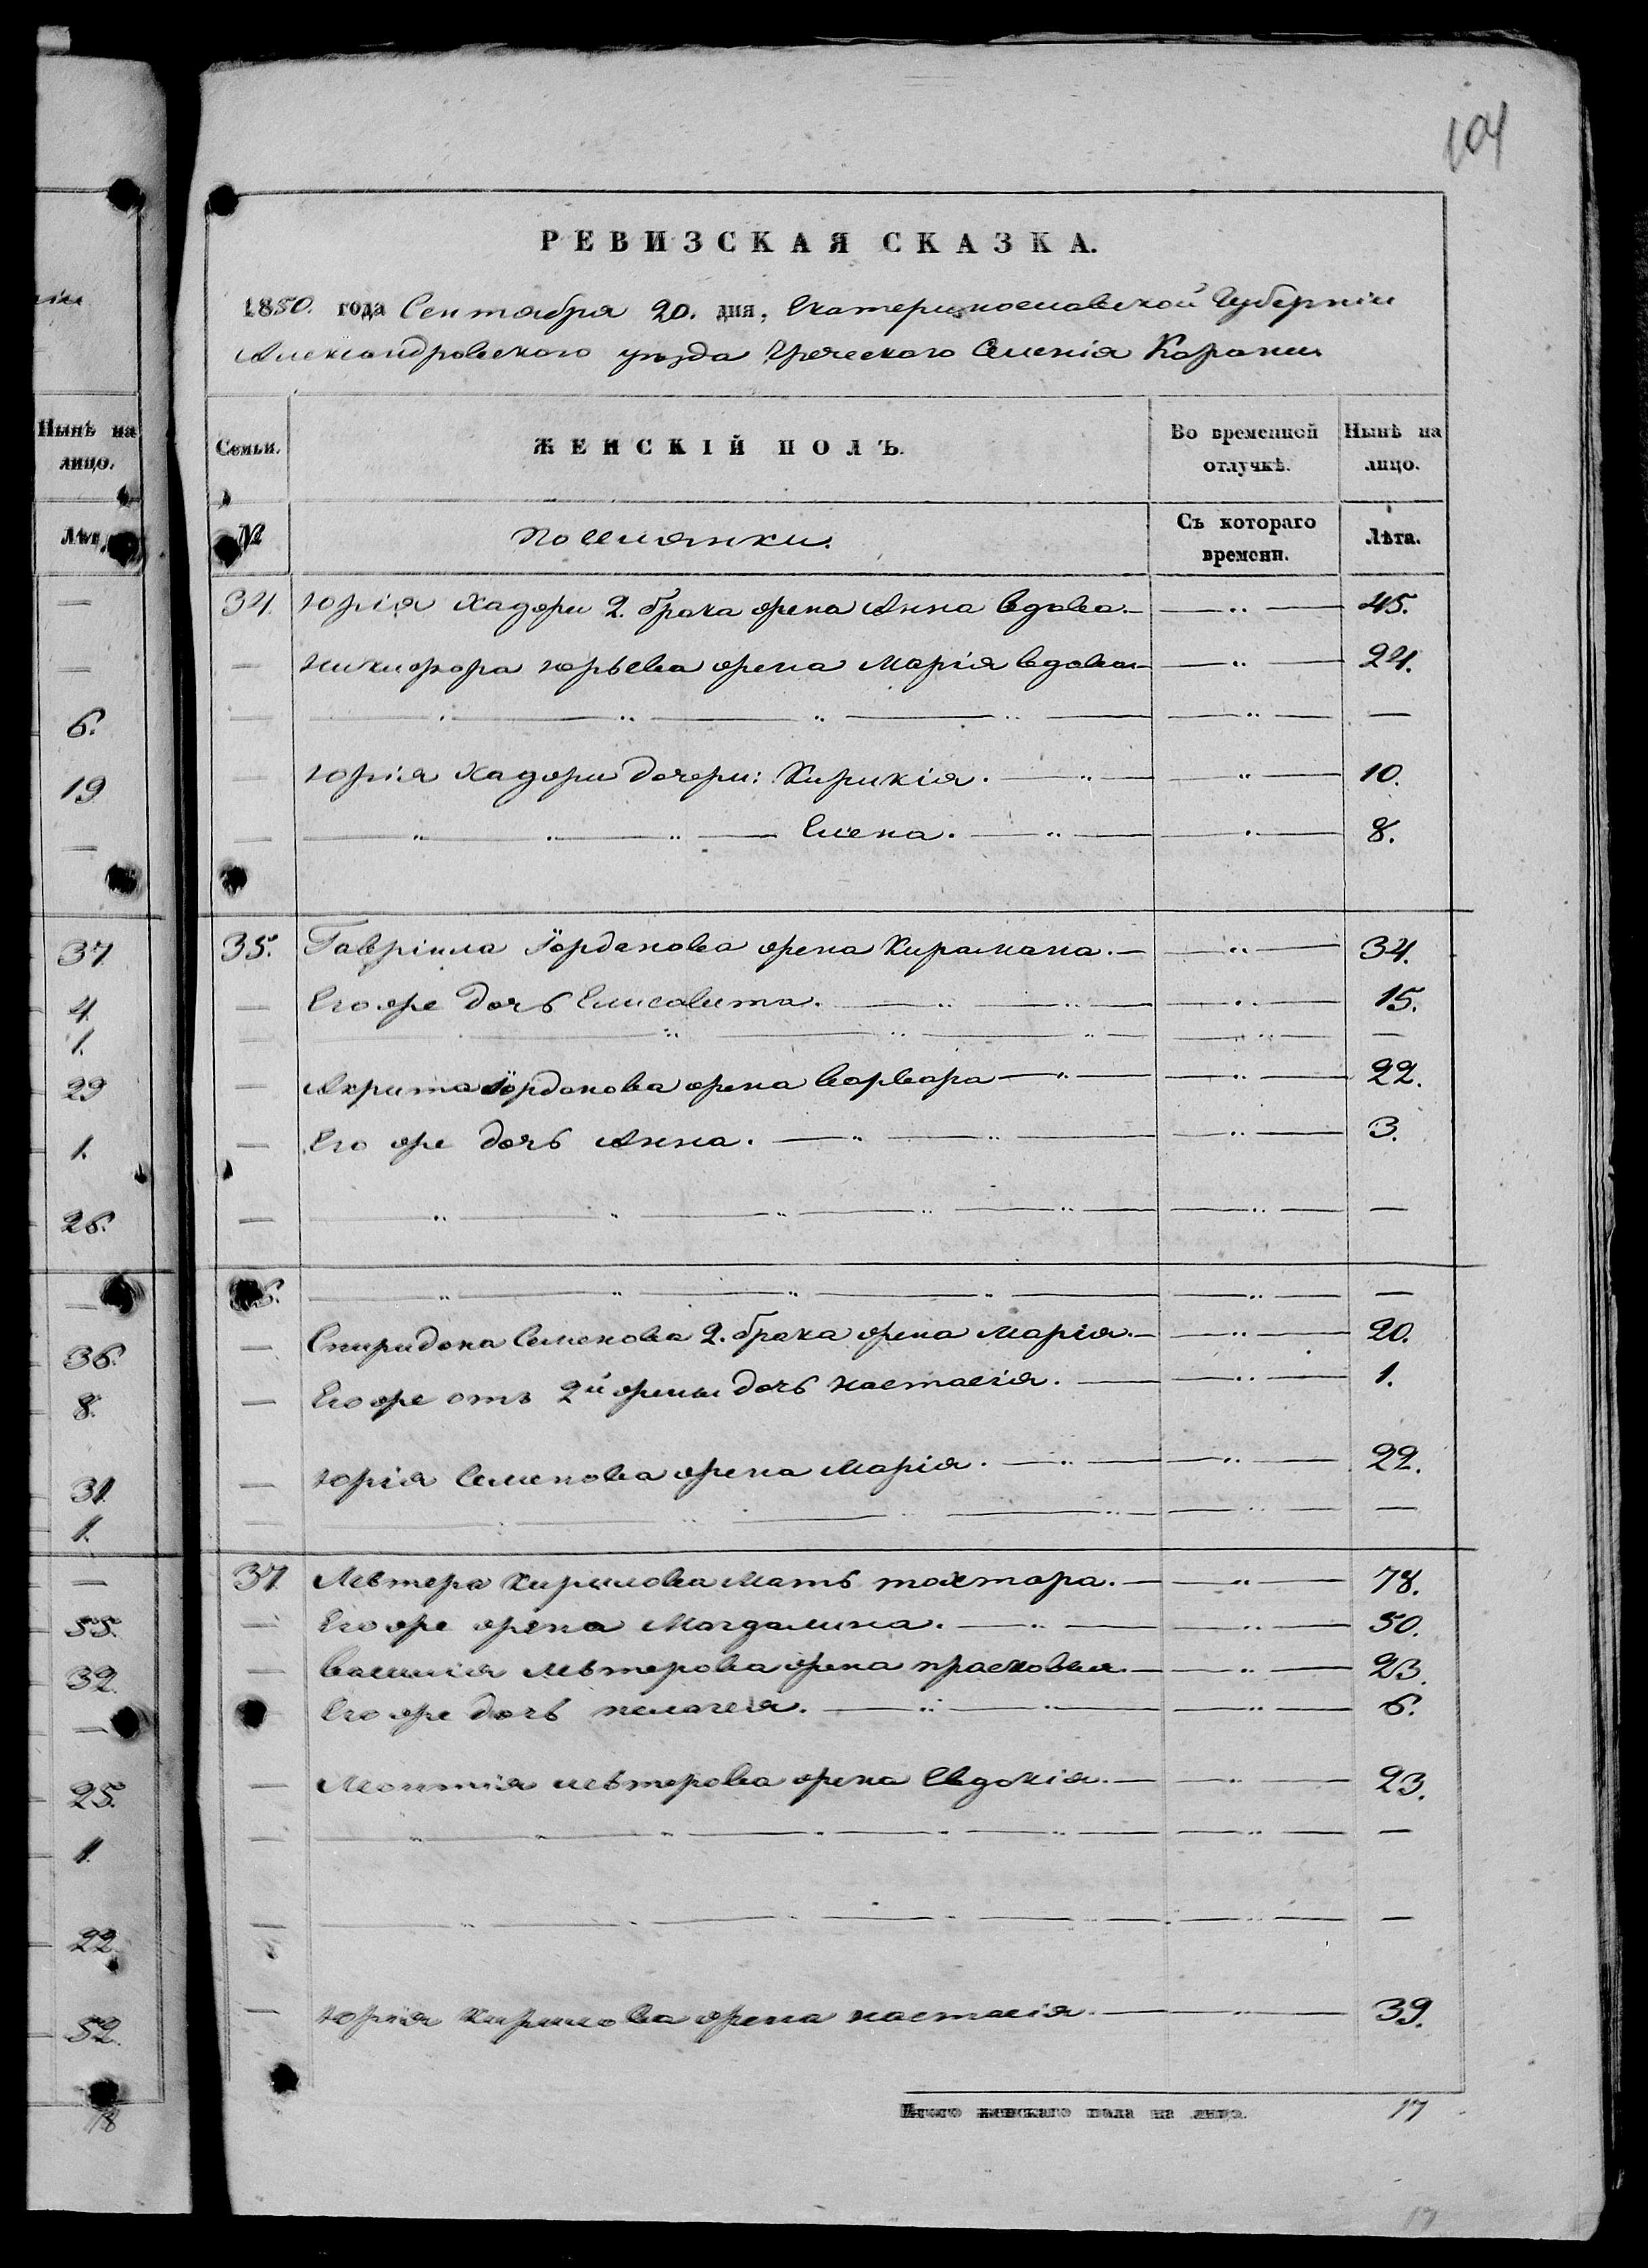 104
РЕВИЗСКАЯ СКАЗКА.
1850. года Сентября 20. дня, Екатеринославской Губерніи
Александровского уѣзда Греческого Селенія Карани
Нынѣ на лицо.
Семьи.
ЖЕНСКІЙ ПОЛЪ.
Во временной отлучкѣ.
Нынѣ на лицо.
Лѣта
№
Поселянки.
Съ котораго времени.
Лѣта.
34. Юрія Хаджи 2. брака жена Анна вдова. — — „ — 45.
— Никифора Юрьева жена Марія вдова — — „ — 24.
— — „ — —
— Юрія Хаджи дочери: Кирикія. — „ — — „ — 10.
— — „ — „ — „ — Елена. — „ — — „ — 8.
35. Гавріила Іорданова жена Кирамана. — — „ — 34.
— Его же дочь Елисавета. — „ — „ — — „ — 15.
— — „ — —
— Ахрита Іорданова жена Варвара — „ — — „ — 22.
— Его же дочь Анна. — „ — „ — — „ — 3.
— — „ — —
36. — „ — —
— Спиридона Семенова 2. брака жена Марія. — — „ — 20.
— Его же отъ 2й жены дочь Настасія. — — „ — 1.
— Юрія Семенова жена Марія. — „ — — „ — 22.
— — „ — —
37. Лѣвтера Кирилова мать Тохтара. — — „ — 78.
— Его же жена Магдалина. — „ — — „ — 50.
— Василія Лѣвтерова жена Прасковья. — — „ — 23.
Его же дочь Пелагея. — „ — „ — — „ — 6.
— Леонтія Лѣвтерова жена Евдокія. — — „ — 23.
— — „ — —
— — „ — —
— Юрія Кирилова жена Настасія. — „ — 39.
Итого женскаго пола на лицо. 17
17
6.
19
37
4.
1.
29
1.
26.
36.
8.
31
1.
55.
32.
25.
1
22.
52.
18